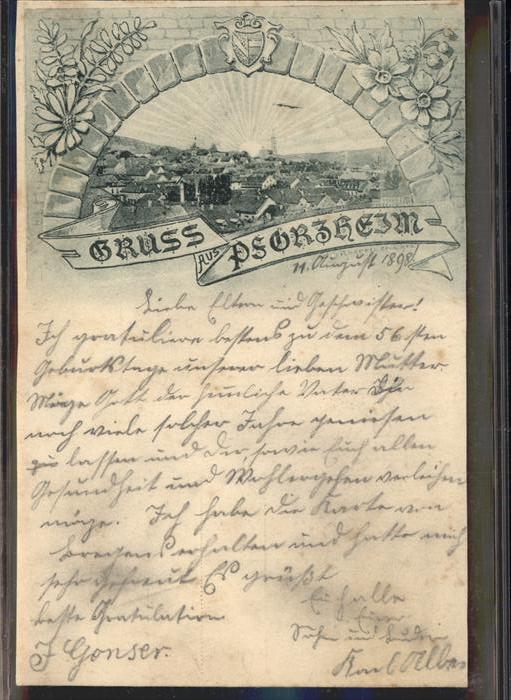 GRUSS
AUS PFORZHEIM
11. August 1898
Liebe Eltern und Geschwister!
Ich gratuliere bestens zu dem 56sten
Geburtstage unserer lieben Mutter.
Möge Gott der himliche Vater
noch viele solcher Jahre geniesen
zu lassen und Dir sowie Euch allen
Gesundheit und Wohlergehen verleihen
möge. Ich habe die Karte von
Bregenz erhalten und hatte mich
sehr gefreut Es grüßt
Euch alle
beste Gratulation
Euer
Sohn und Bruder
J Gonser.
Karl Alber